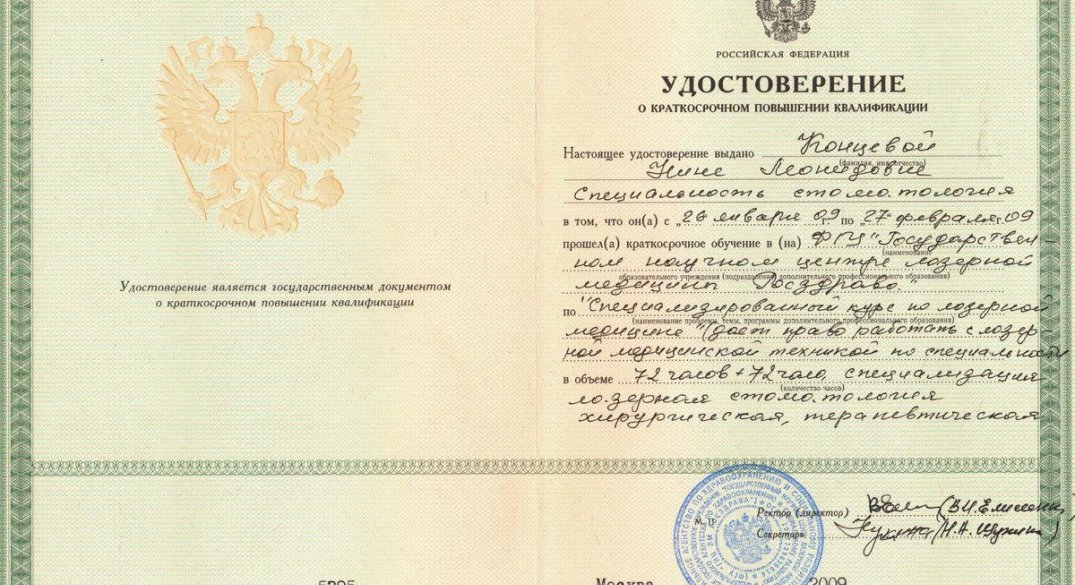 Удостоверение является государственным документом
о краткосрочном повышении квалификации
РОССИЙСКАЯ ФЕДЕРАЦИЯ
УДОСТОВЕРЕНИЕ
О КРАТКОСРОЧНОМ ПОВЫШЕНИИ КВАЛИФИКАЦИИ
Настоящее удостоверение выдано Концевой
(фамилия, имя, отчество)
Нине Леонидовне
Специальность стоматология
в том, что он(а) с „26 января 09 г. по „27 февраля 09
прошел(а) краткосрочное обучение в (на) ФГУ "Государствен-
(наименование
ном научном центре лазерной
образовательного учреждения (подразделения) дополнительного профессионального образования)
медицины Росздрава"
по "Специализированный курс по лазерной
(наименование проблемы, темы, программы дополнительного профессионального образования)
медицине" (дает право работать с лазер-
ной медицинской техникой по специальности
в объеме 72 часов + 72 часа, специализация
(количество часов)
лазерная стоматология
хирургическая, терапевтическая
М.П.
Ректор (директор)
Секретарь
Москва
2009